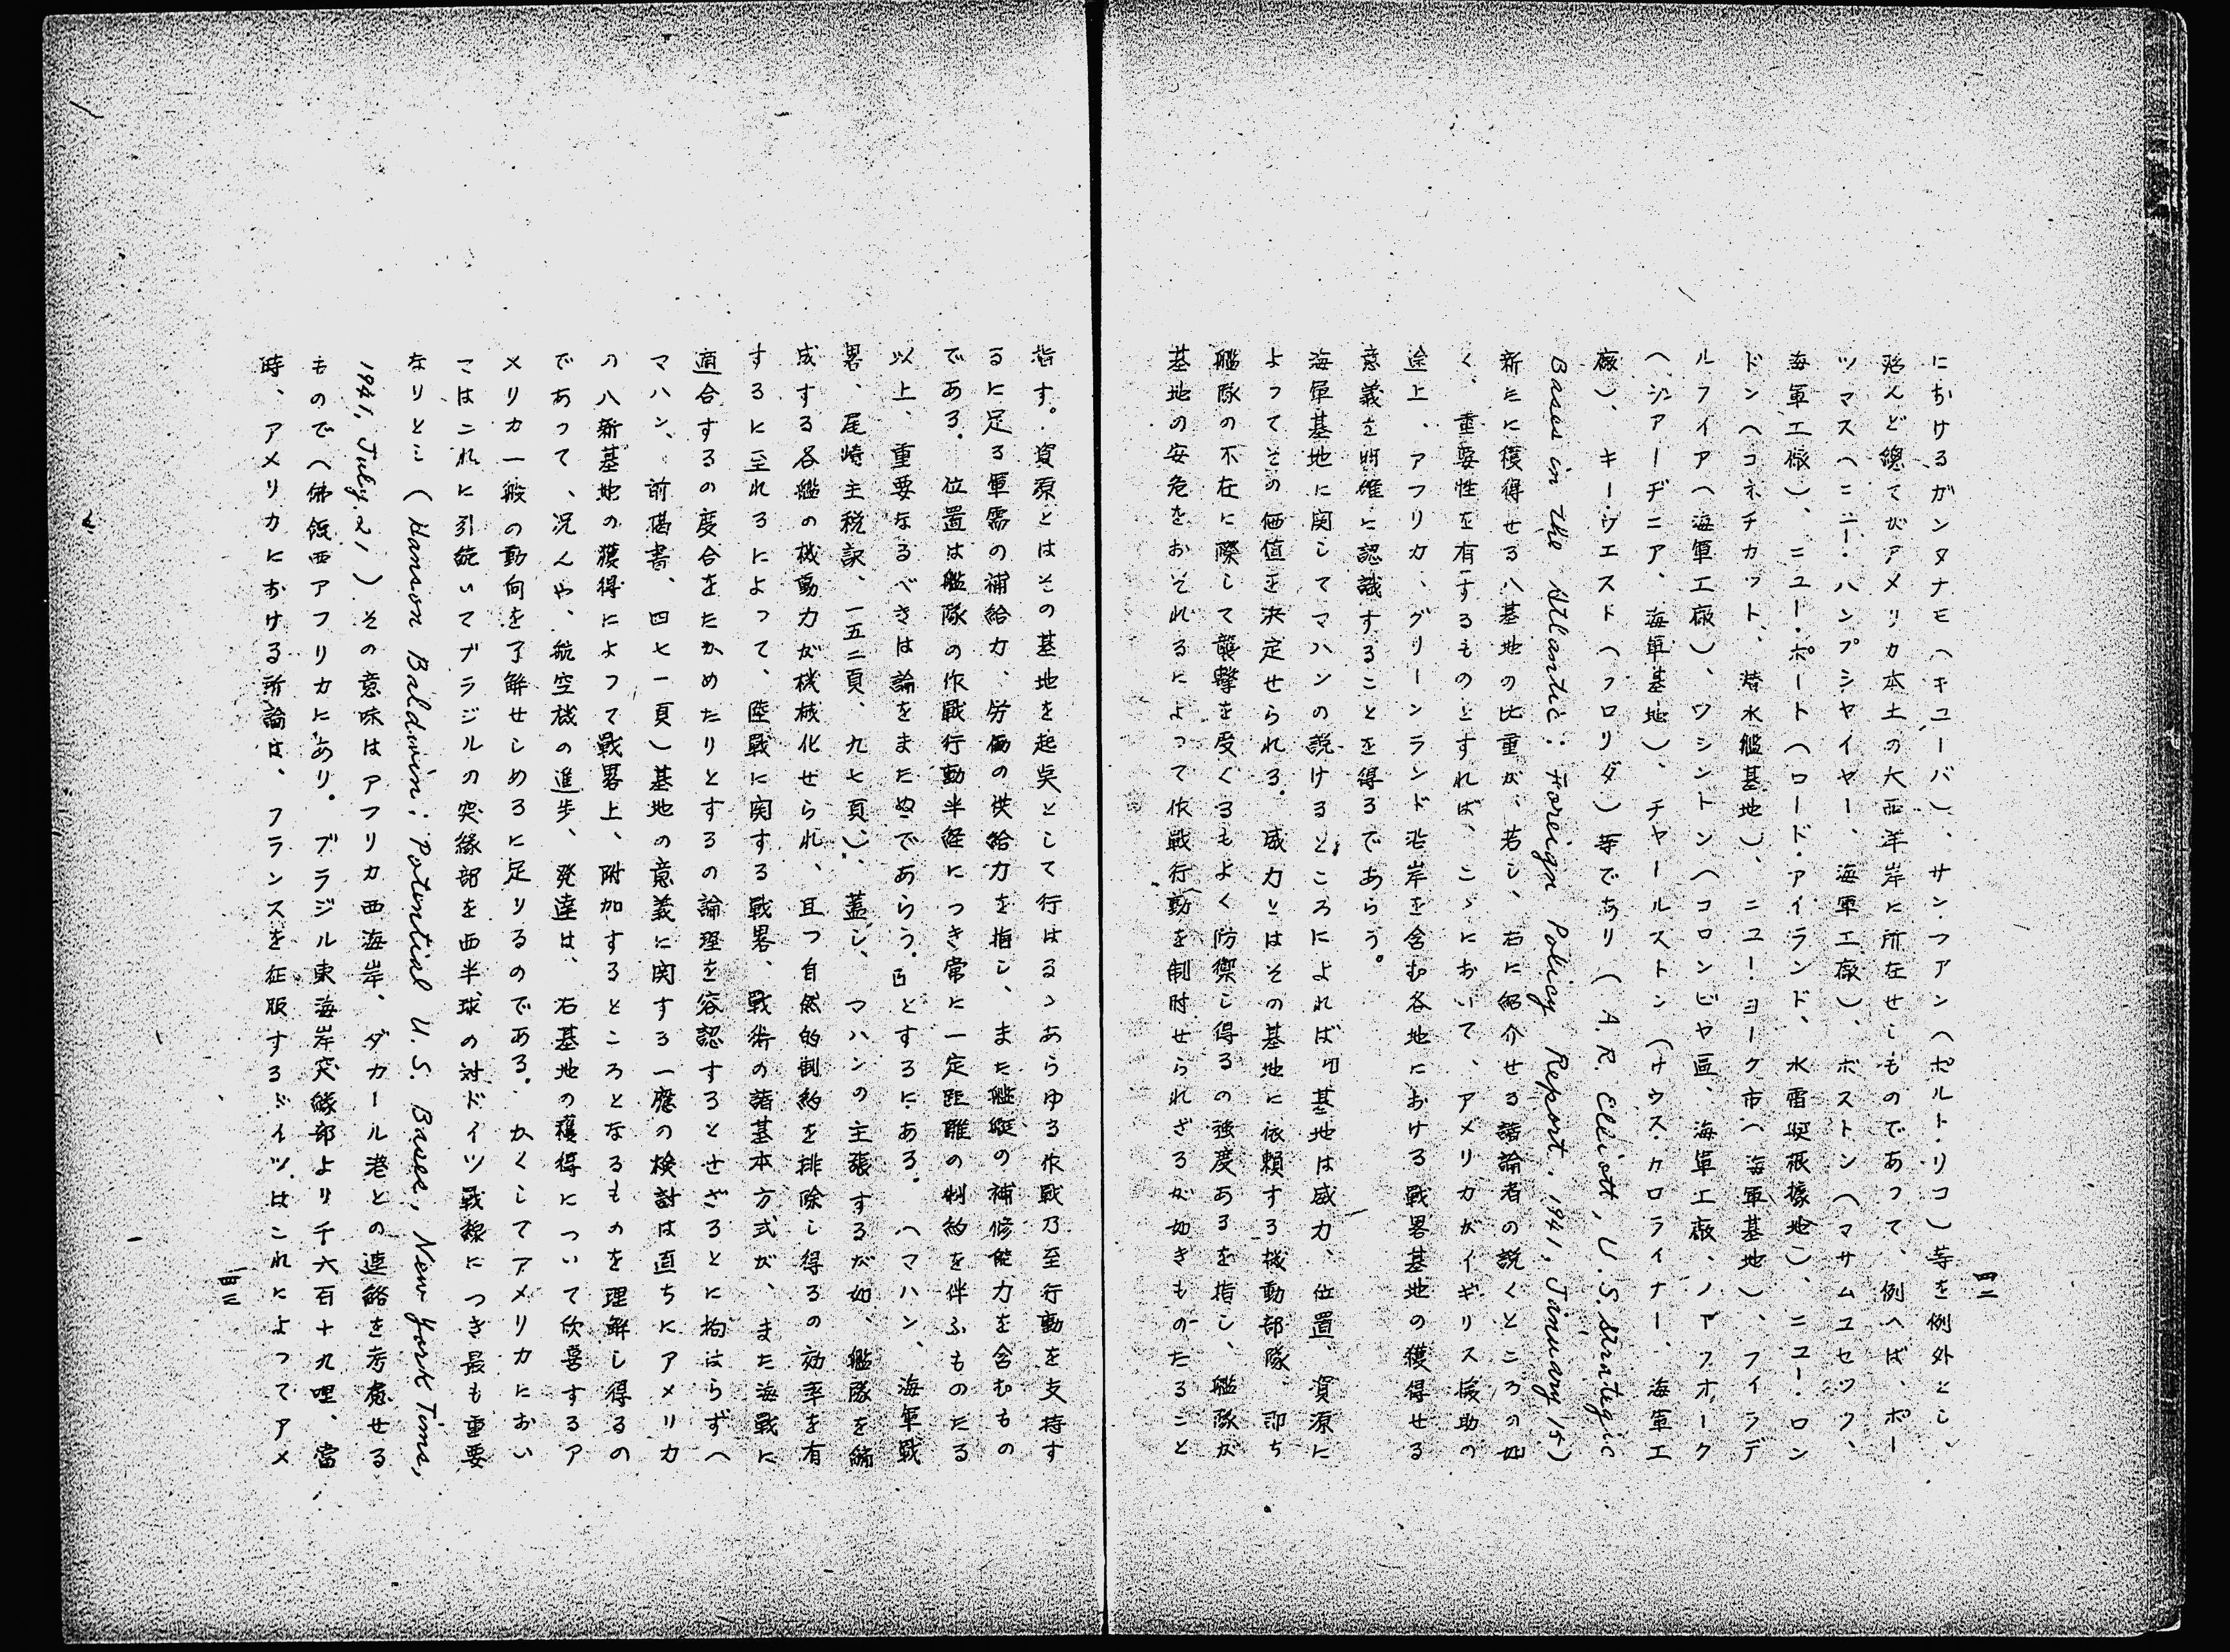 四二
におけるガンタナモ（キューバ）、サン・フアン（ポルト・リコ）等を例外とし、
殆んど總てがアメリカ本土の大西洋岸に所在せしものであって、例へば、ポー
ツマス（ニュー・ハンプシヤイヤー、海軍工廠）、ボストン（マサムユセッツ、
海軍工廠）、ニユー・ポート（ロード・アイランド、水雷艇根據地）、ニユー・ロン
ドン（コネチカット、潜水艦基地）、ニユー・ヨーク市（海軍基地）、フイラデ
ルフイア（海軍工廠）、ワシントン（コロンビヤ區、海軍工廠、ノアフオーク
（ヴアーヂニア、海軍基地）、チヤールストン（サウス・カロライナー、海軍工
廠）、キー・ウエスト（フロリダ）等であり（A. R. Elliott, U. S. Strategic
Bases in the Atlantic: Foreign Policy Report, 1941, January 15）
新たに獲得せる八基地の比重が、若し、右に紹介せる諸論者の説くところの如
く、重要性を有するものとすれば、こゝにおいて、アメリカがイギリス援助の
途上、アフリカ、グリーンランド沿岸を含む各地における戦畧基地の獲得せる
意義を明確に認識することを得るであらう。
海軍基地に関してマハンの説けるところによれば『基地は威力、位置、資源に
よってその価値を決定せられる。威力とはその基地に依頼する機動部隊、卽ち
艦隊の不在に際して襲撃を受くるもよく防禦し得るの強度あるを指し、艦隊が
基地の安危をおそれるによって作戦行動を制肘せられざるが如きものたること
指す。資源とはその基地を起点として行はるゝあらゆる作戦乃至行動を支持す
るに足る軍需の補給力、労働の供給力を指し、また艦艇の補修能力を含むもの
である。位置は艦隊の作戦行動半経につき常に一定距離の制約を伴ふものたる
以上、重要なるべきは論をまたぬであらう。』とするにある。（マハン、海軍戦
畧、尾崎主税訳、一五二頁、九七頁）、蓋し、マハンの主張するが如、艦隊を編
成する各艦の機動力が機械化せられ、且つ自然的制約を排除し得るの効率を有
するに至れるによって、陸戰に関する戦畧、戰術の諸基本方式が、また海戰に
適合するの度合をたかめたりとするの論理を容認するとせざるとに拘はらず（
マハン、前掲書、四七一頁）基地の意義に関する一應の検討は直ちにアメリカ
の八新基地の獲得によって戰畧上、附加するところとなるものを理解し得るの
であって、况んや、航空機の進歩、発達は、右基地の獲得について欣喜するア
メリカ一般の動向を了解せしめるに足りるのである。かくしてアメリカにおい
てはこれに引続いてブラジルの突緣部を西半球の対ドイツ戦線につき最も重要
なりと…（Hanson Baldwin: Potential U. S. Bases, New York Times,
1941, July. 21）その意味はアフリカ西海岸、ダカール港との連絡を考慮せる
もので（佛領西アフリカにあり。ブラジル東海岸突緣部より千六百十九哩、當
時、アメリカにおける所論は、フランスを征服するドイツはこれによってアメ
四三